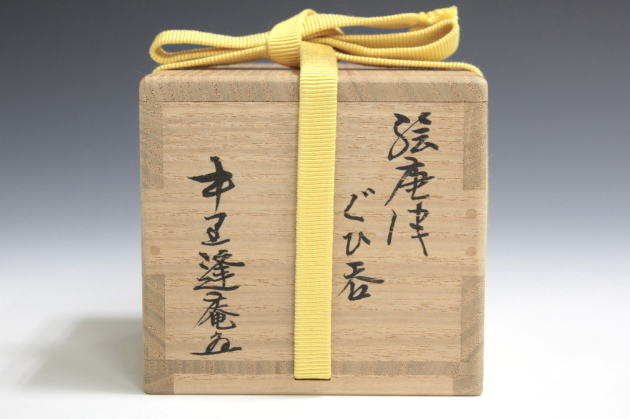 絵唐津
ぐひ呑
中里逢庵